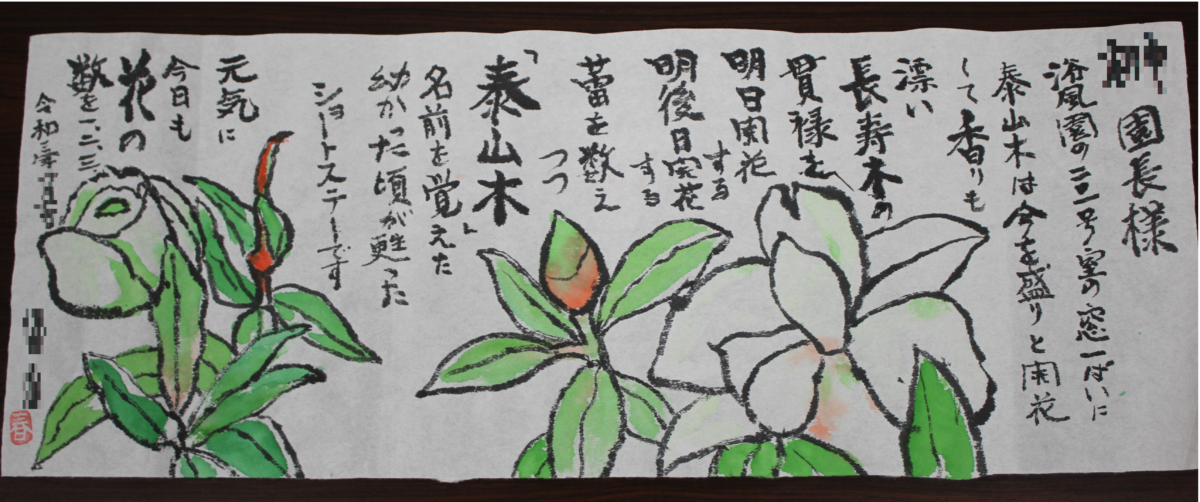 園長様
浴風園の二一号室の窓一ぱいに
泰山木は今を盛りと開花
して香りも
漂い
長寿木の
貫禄を
明日開花
する
明後日開花
する
蕾を数え
つつ
「泰山木」
名前を覚えた
幼かった頃が甦った
ショートステーです
元気に
今日も
花の
数を一、二、三、
令和
春